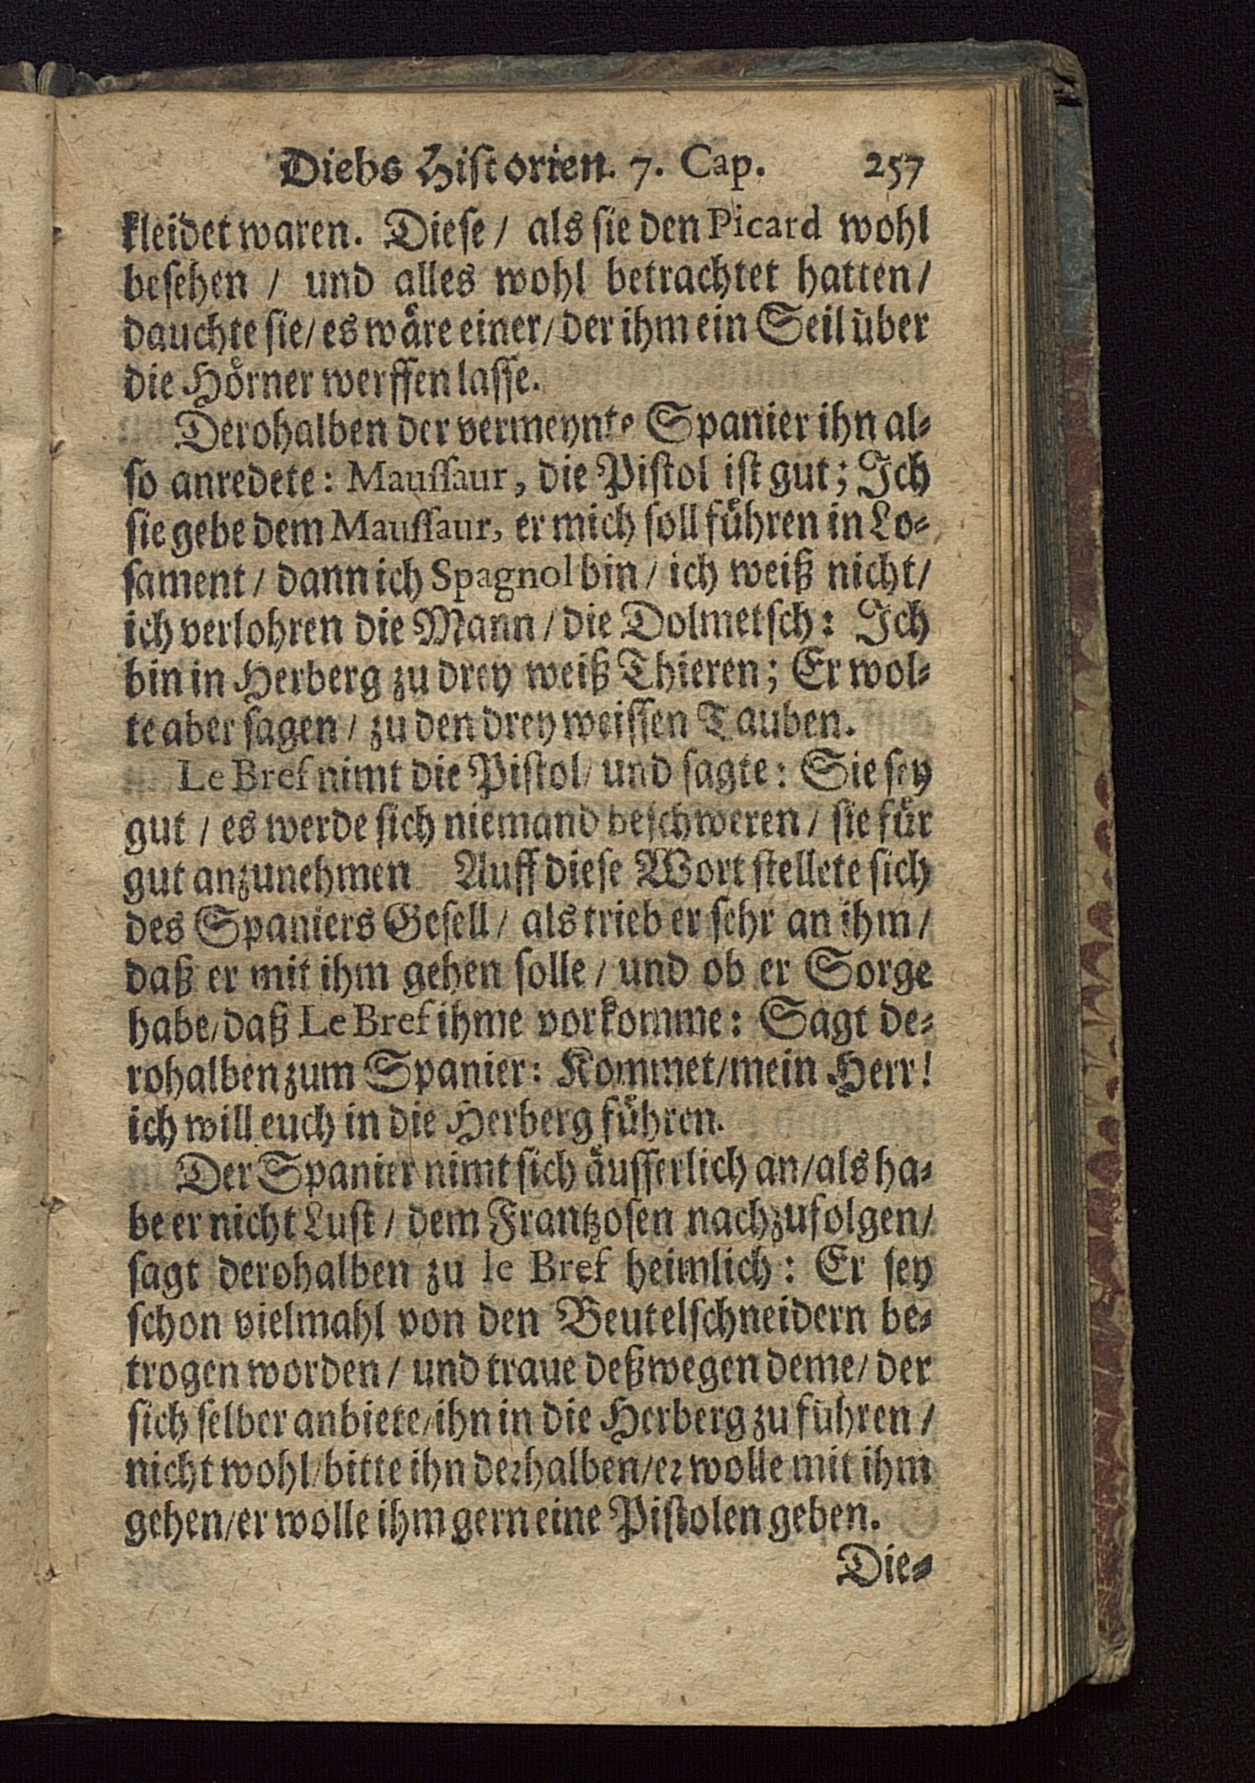 Diebs Historien. 7. Cap. 257
kleidet waren. Diese / als sie den Picard wohl
besehen / und alles wohl betrachtet hatten /
dauchte sie / es wäre einer / der ihm ein Seil über
die Hörner werffen lasse.
Derohalben der vermeynte Spanier ihn al-
so anredete: Maussaur, die Pistol ist gut; Ich
sie gebe dem Maussaur, er mich soll führen in Lo-
sament / dann ich Spagnol bin / ich weiß nicht /
ich verlohren die Mann / die Dolmetsch: Ich
bin in Herberg zu drey weiß Thieren; Er wol-
te aber sagen / zu den drey weissen Tauben.
Le Bref nimt die Pistol / und sagte: Sie sey
gut / es werde sich niemand beschweren / sie für
gut anzunehmen Auff diese Wort stellete sich
des Spaniers Gesell / als trieb er sehr an ihm /
daß er mit ihm gehen solle / und ob er Sorge
habe / daß Le Bref ihme vorkomme: Sagt de-
rohalben zum Spanier: Kommet / mein Herr!
ich will euch in die Herberg führen.
Der Spanier nimt sich äusserlich an / als ha-
be er nicht Lust / dem Frantzosen nachzufolgen /
sagt derohalben zu le Bref heimlich: Er sey
schon vielmahl von den Beutelschneidern be-
trogen worden / und traue deßwegen deme / der
sich selber anbiete / ihn in die Herberg zu führen /
nicht wohl / bitte ihn derhalben / er wolle mit ihm
gehen / er wolle ihm gern eine Pistolen geben.
Die-